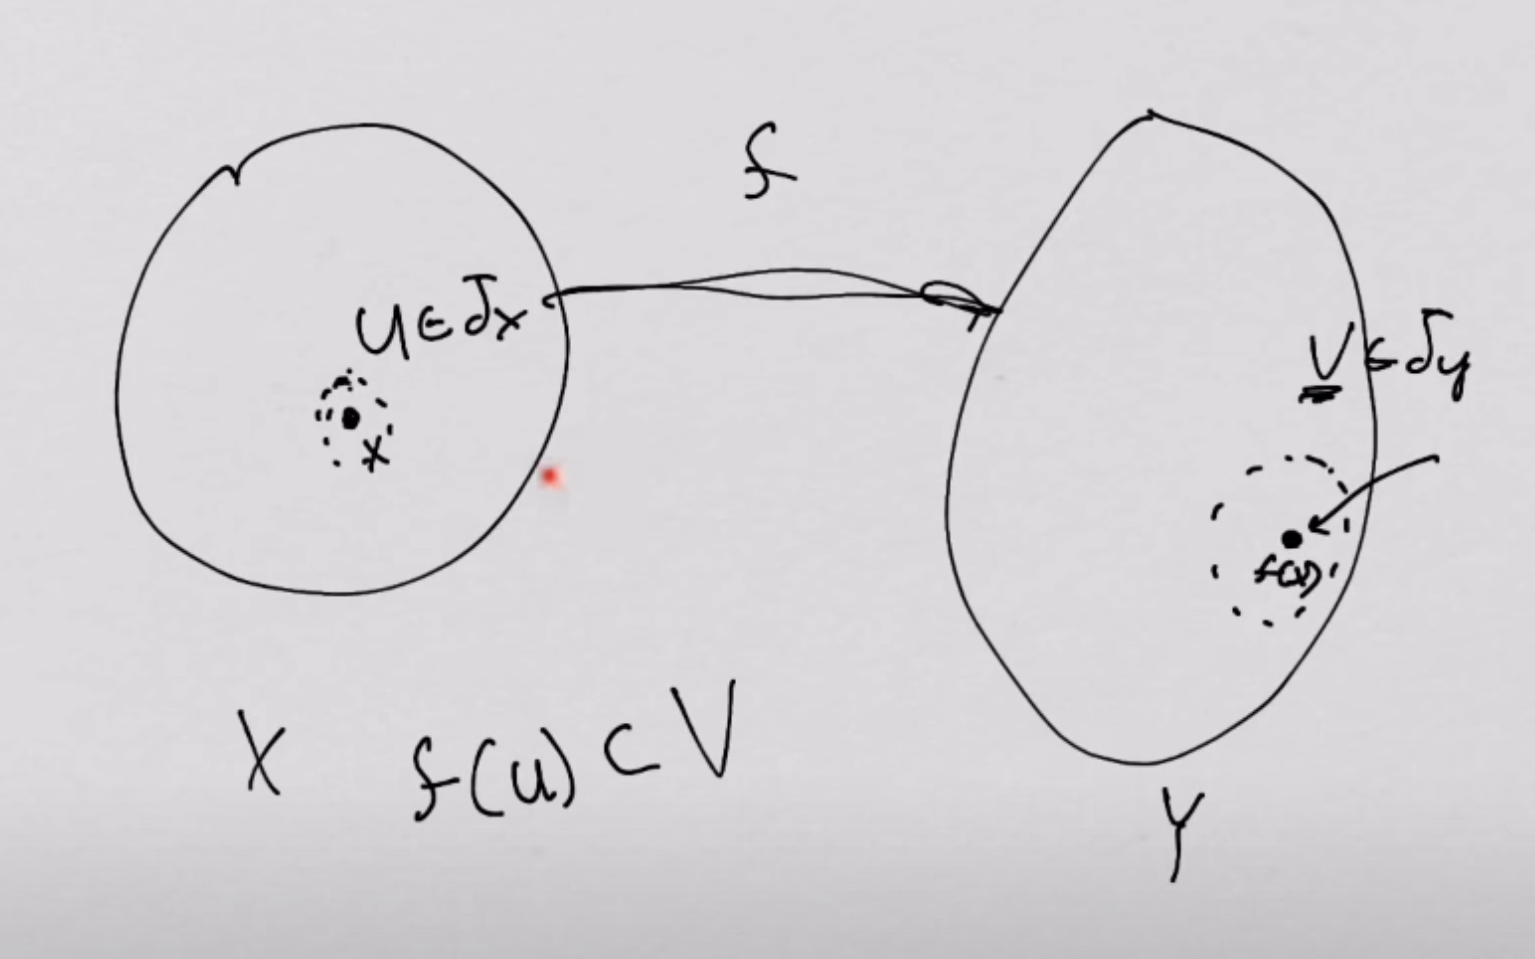 f
U ∈ Jx
V ∈ Jy
x
f(x)
X
f(u) ⊂ V
Y